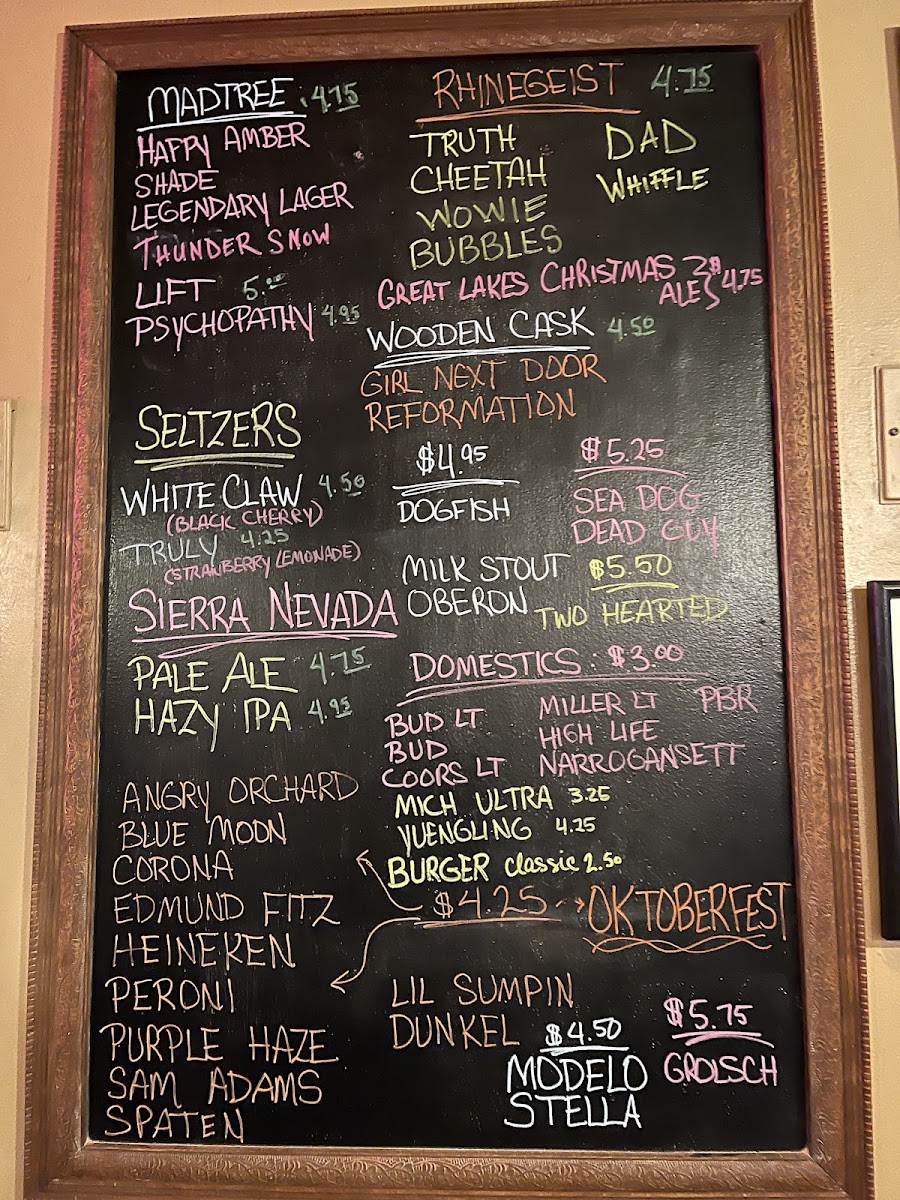 MADTREE 4.75
HAPPY AMBER
SHADE
LEGENDARY LAGER
THUNDER SNOW
LIFT 5.00
PSYCHOPATHY 4.95
SELTZERS
WHITE CLAW 4.50
(BLACK CHERRY)
TRULY 4.25
(STRAWBERRY LEMONADE)
SIERRA NEVADA
PALE ALE 4.75
HAZY IPA 4.95
ANGRY ORCHARD
BLUE MOON
CORONA
EDMUND FITZ
HEINEKEN
PERONI
PURPLE HAZE
SAM ADAMS
SPATEN
RHINEGEIST 4.75
TRUTH DAD
CHEETAH WHIFFLE
WOWIE
BUBBLES
GREAT LAKES CHRISTMAS
ALE } $4.75
WOODEN CASK 4.50
GIRL NEXT DOOR
REFORMATION
$4.95
DOGFISH
MILK STOUT
OBERON
$5.25
SEA DOG
DEAD GUY
$5.50
TWO HEARTED
DOMESTICS: $3.00
BUD LT MILLER LT PBR
BUD HIGH LIFE
COORS LT NARROGANSETT
MICH ULTRA 3.25
YUENGLING 4.25
BURGER classic 2.50
$4.25 → OKTOBERFEST
LIL SUMPIN
DUNKEL
$4.50
MODELO
STELLA
$5.75
GROLSCH